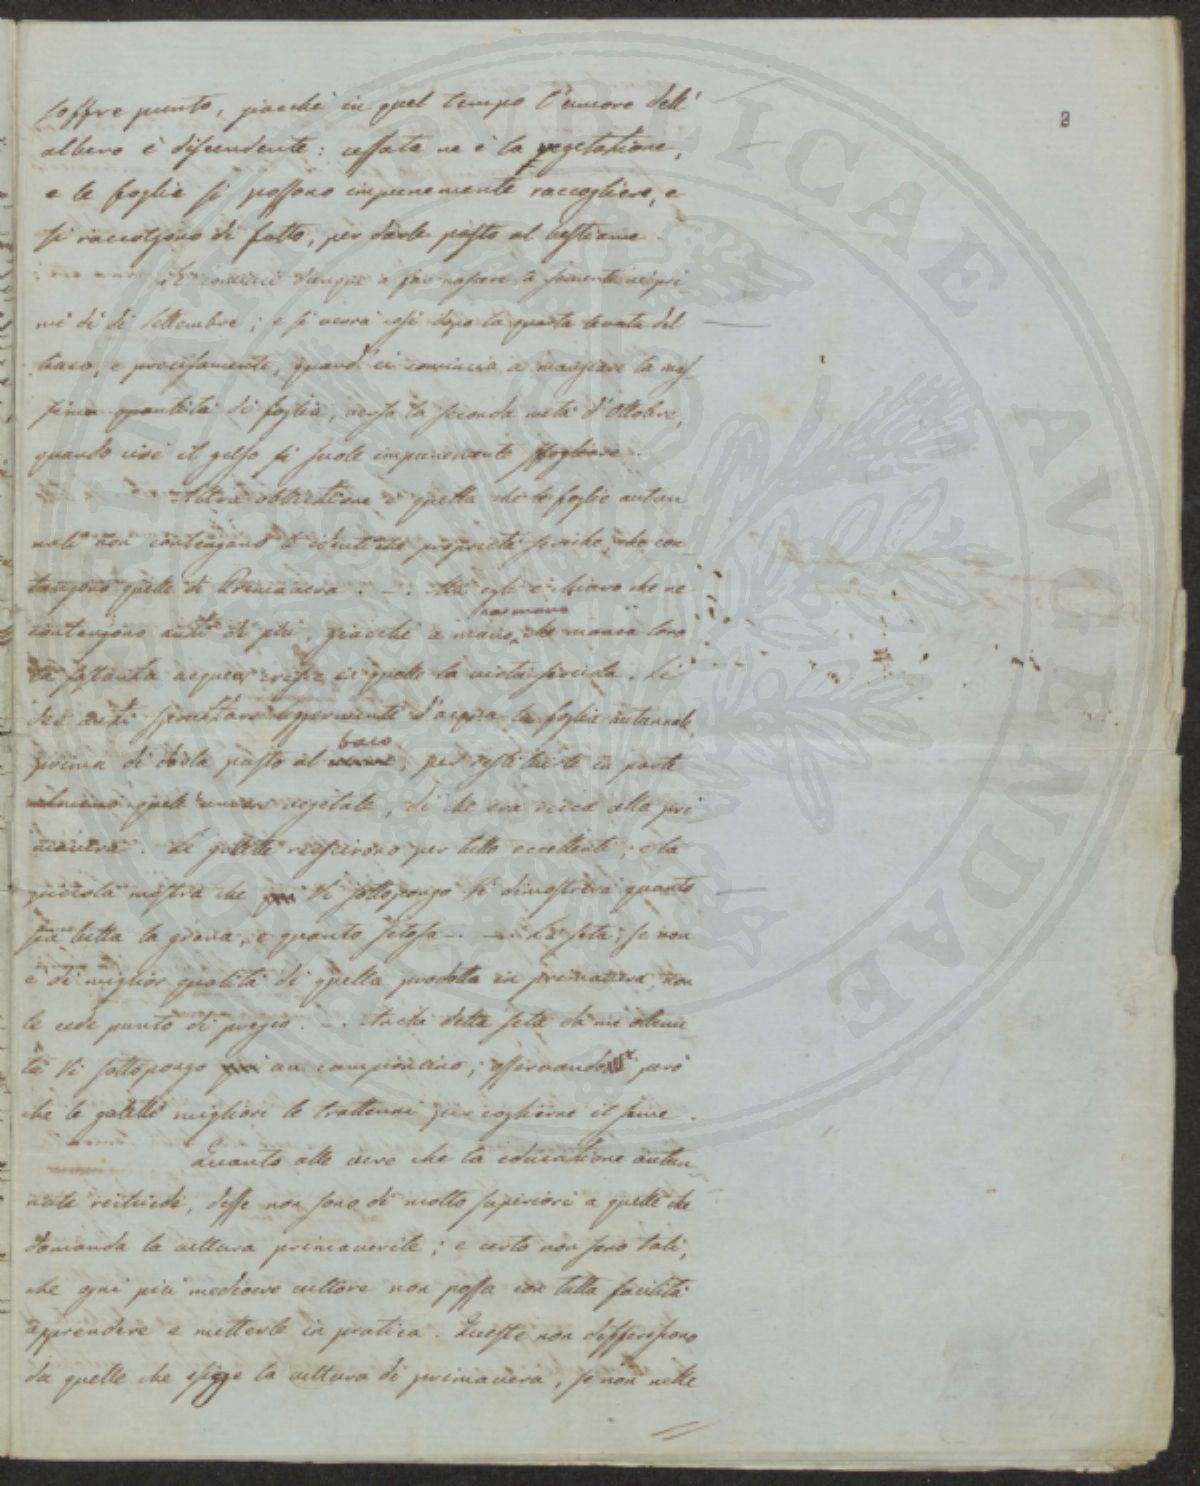 2
soffre punto, giacché in quel tempo l'umore dell'
albero è discendente: cessata ne è la vegetazione,
e le foglie si possono impunemente raccogliere, e
si raccolgono di fatto, per darle pasto al bestiame.
Si cominci dunque a far nascere la semente nei pri
mi dì di Settembre; e si verrà così dopo la quarta levata del
baco, e precisamente, quand' ei comincia a mangiare la mas
sima quantità di foglia, verso la seconda metà d'Ottobre,
quando cioè il gelso si suole impunemente sfogliare.
Altra obbiezione è quella che le foglie autun
nali non contengano le identiche proprietà seriche, che con
tengono quelle di Primavera. — . Ma egli è chiaro che ne
contengono anzi di più, giacché a mano
a mano che manca loro
la sostanza acquea, cresce in quelle la viscida. Si
dee anzi spruzzare leggermente d'acqua la foglia autunnale,
baco
prima di darla pasto al, per restituirle in parte
almeno quell' umore vegetale, di che era ricca alla pri
mavera. Le galette riuscirono per tutto eccellenti, e la
piccola mostra che Vi sottopongo Vi dimostrerà quanto
sia bella la grana, e quanto setosa. — . La seta, se non
è di miglior qualità di quella prodotta in primavera, non
le cede punto di pregio. — . Anche della seta da me ottenu
ta Vi sottopongo un campioncino; osservando però
che le galette migliori le trattenni per coglierne il seme.
Quanto alle cure che la educazione autun
nale richiede, desse non sono di molto superiori a quelle che
domanda la coltura primaverile; e certo non sono tali,
che ogni più mediocre cultore non possa con tutta facilità
apprendere e metterle in pratica. Queste non differiscono
da quelle che esigge la coltura di primavera, se non nelle